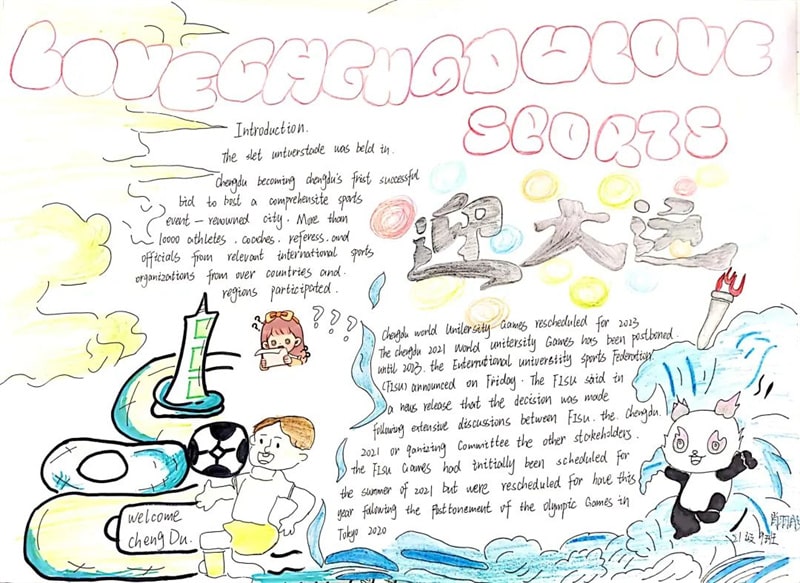 LOVECHENGDULOVE
SPORTS
Introduction.
The slet untuerstade was beld in.
Chengdu becoming chengdu's frist successful
bid to bost a comprehensite sports
event — renowned city. More than
10000 athletes, coaches, referess, and
officials from relevant international sports
organizations from over countries and.
regions participated.
迎大运
? ? ?
Chengdu world Unilersity Games rescheduled for 2023
The chengdu 2021 world unitersity Games has been postboned
until 2023. the Enterrational university sports Federation
(FISU) announced on Friday. The FISU said in
a news release that the decision was made
following extensive discussions between FISU. the chengdu.
2021 or ganizing Committee the other stakeholders.
the FISU Games had initially been scheduled for
the summer of 2021 but were rescheduled for hove this
year following the Posttonement of the olympic Games in
Tokyo 2020
welcome
cheng Du.
21级7班